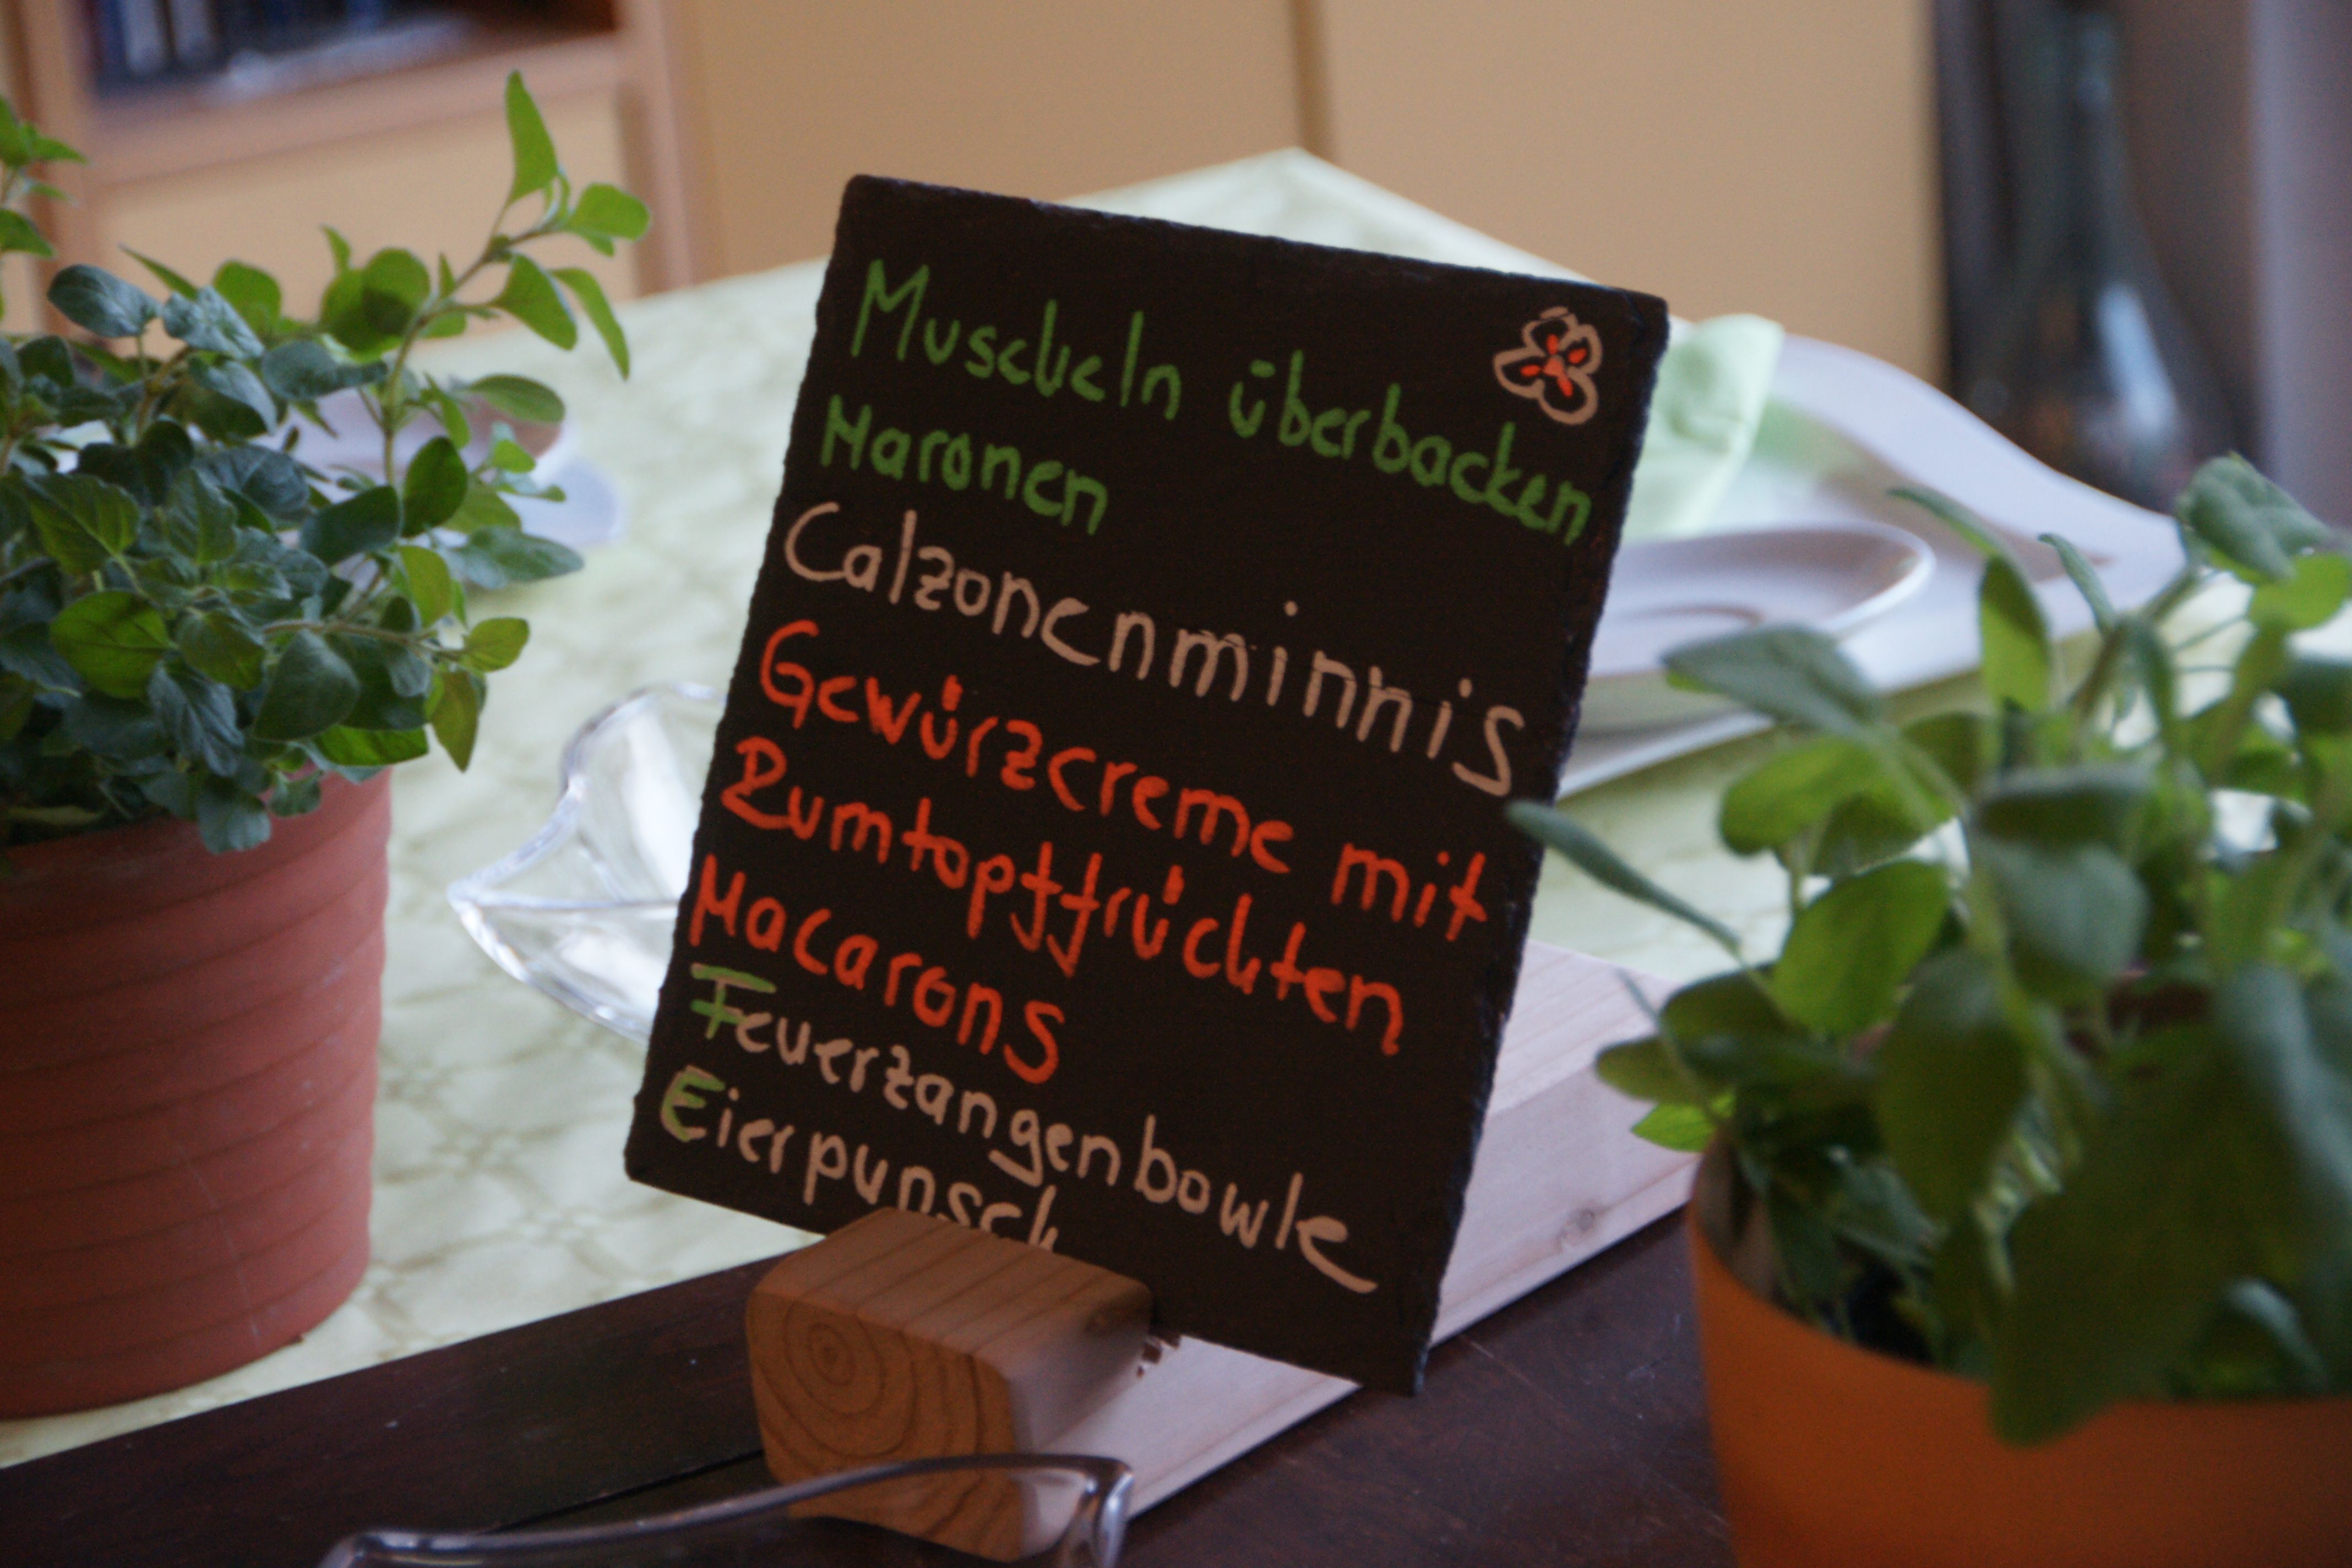 Muscheln überbacken
Maronen
Calzonenminnis
Gewürzcreme mit
Rumtopffrüchten
Macarons
Feuerzangenbowle
Eierpunsch